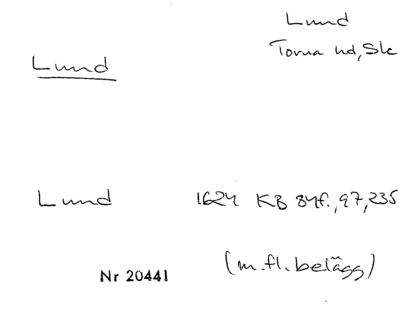 Lund
Torna hd, Sk
Lund
Lund 1624 KB 84f., 97, 235
(m.fl. belägg)
Nr 20441